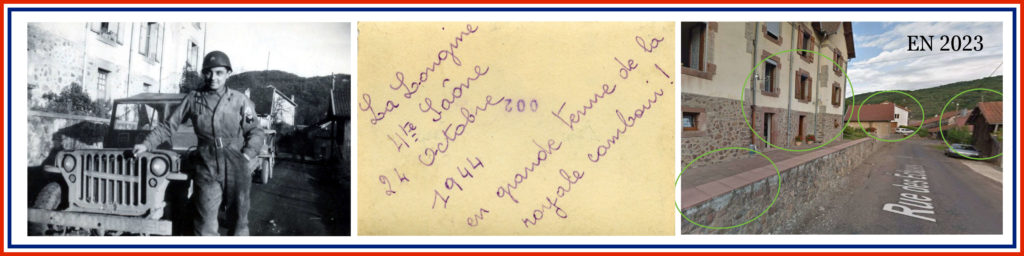 La Longine
Hte Saône
24 Octobre
1944
200
en grande tenue de la
royale camboui !
EN 2023
Rue des